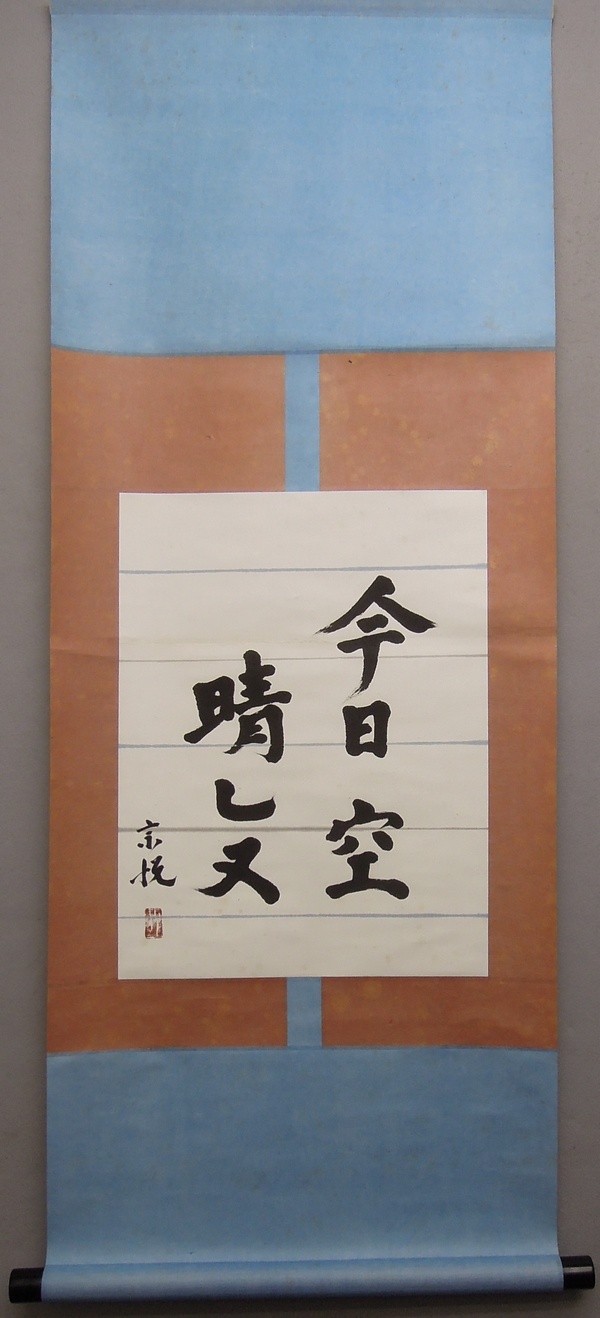 今日空
晴し又
宗悦